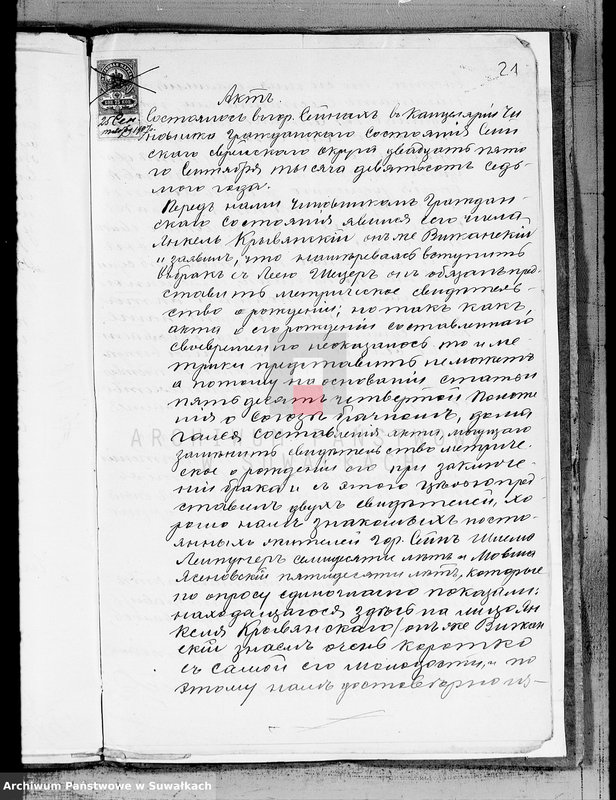 21
25 Сен
Актъ.
Состоялось въ гор. Сейнахъ въ Канцеляріи Чи
новника Гражданскаго состоянія Сейн
скаго еврейскаго округа двадцать пято
го Сентября тысяча девятьсотъ седь
мого года.
Передъ нами Чиновникомъ Граждан-
скаго состоянія явился сего числа
Янкель Крывянскій онъ же Вижанскій
и заявилъ, что намѣреваясь вступить
въ бракъ съ Леею онъ обязанъ пред-
ставить метрическое свидѣтель-
ство о рожденіи; но такъ какъ
акта о его рожденіи составленнаго
своевременно не оказалось то и ме-
трики представить не можетъ
а потому на основаніи статьи
пятьдесятъ четвертой Положе
нія о Союзѣ брачномъ, дома
гался составленія акта могущаго
замѣнить свидѣтельство метриче-
ское о рожденіи его при заключе-
ніи брака и съ этого цѣлью пред-
ставилъ двухъ свидѣтелей, хо-
рошо намъ знакомыхъ посто-
янныхъ жителей гор. Сейнъ
семидесяти лѣтъ и Мовша
Ясеновскій пятидесяти лѣтъ, которые
по опросу единогласно показали:
находящагося здѣсь на лицо Ян
келя Крывянскаго онъ же Вижан
скій знаемъ очень коротко
съ самой его молодости, и по
этому намъ достовѣрно из-
ARCHIWUM PAŃSTWOWE
W SUWAŁKACH
Archiwum Państwowe w Suwałkach